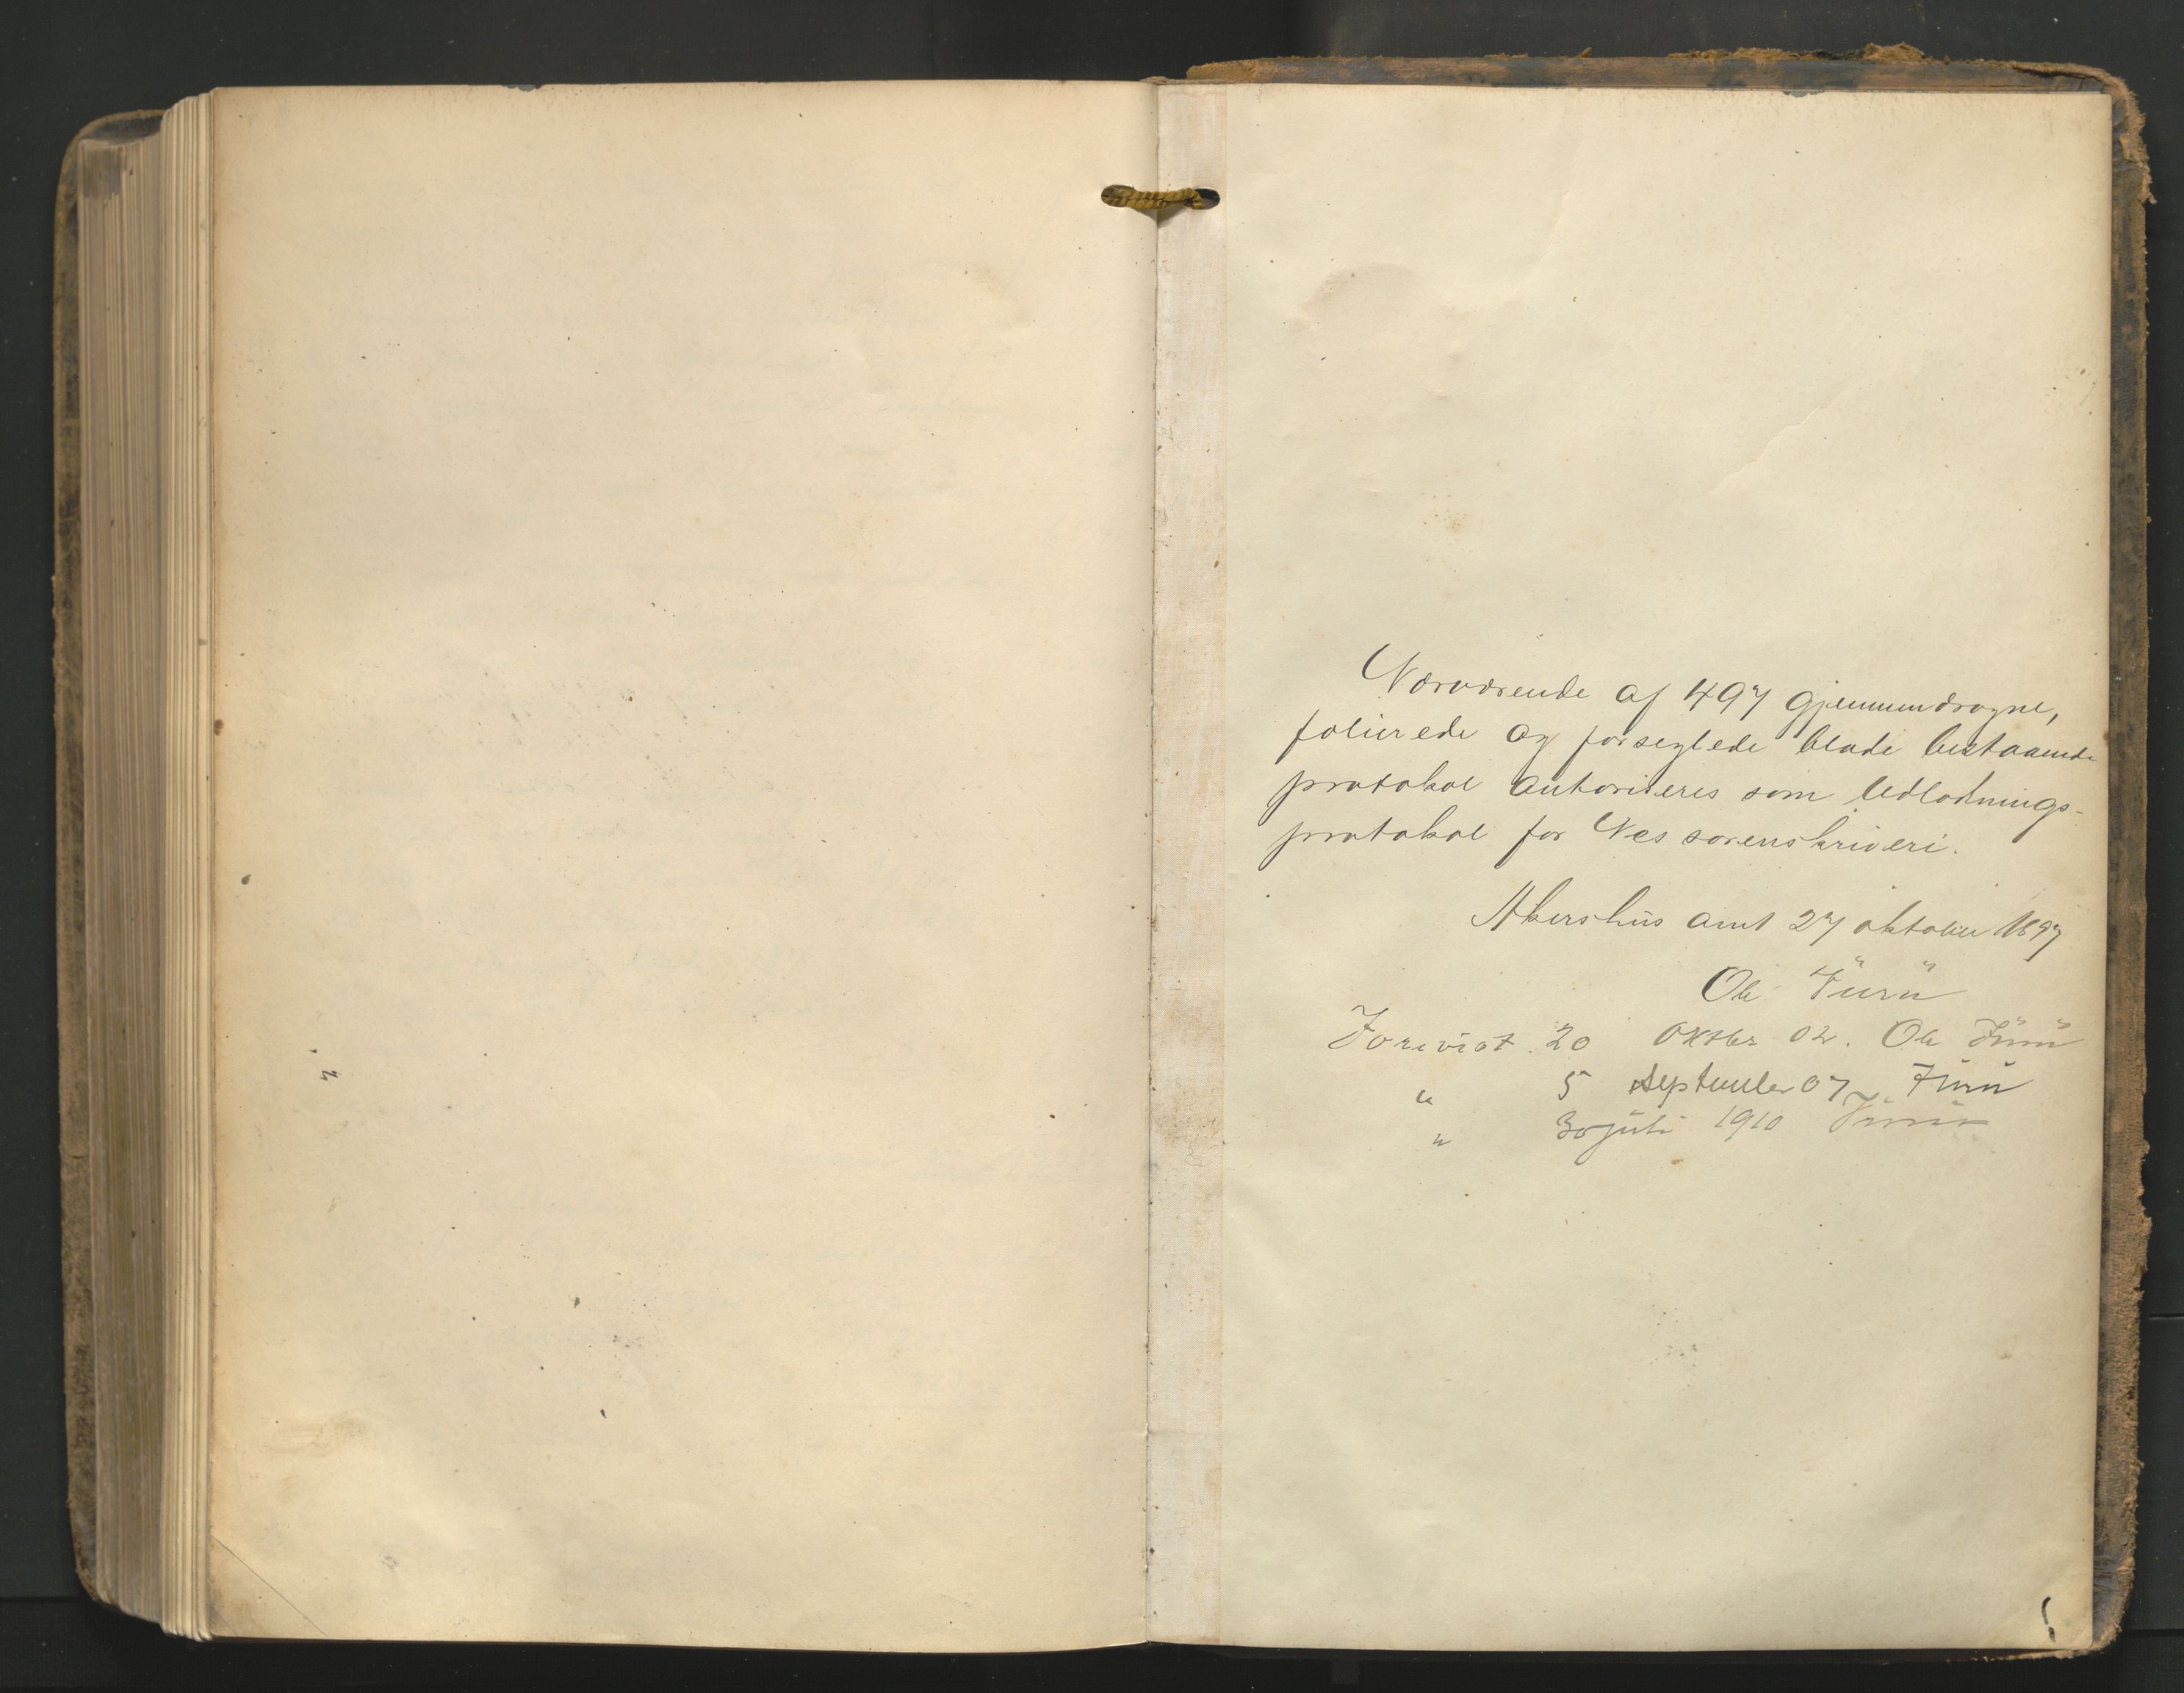 Nærværende af 497 gjennemdragne,
folierede og forseglede blade bestaaende
protokol autoriseres som Udlodnings-
protokol for Nes sorenskriveri.
Akershus amt 27 oktober 1897
Ole Furu
Forevist 20 Oktbr 02. Ole Furu
" 5 September 07 Furu
" 30 juli 1910 Furu